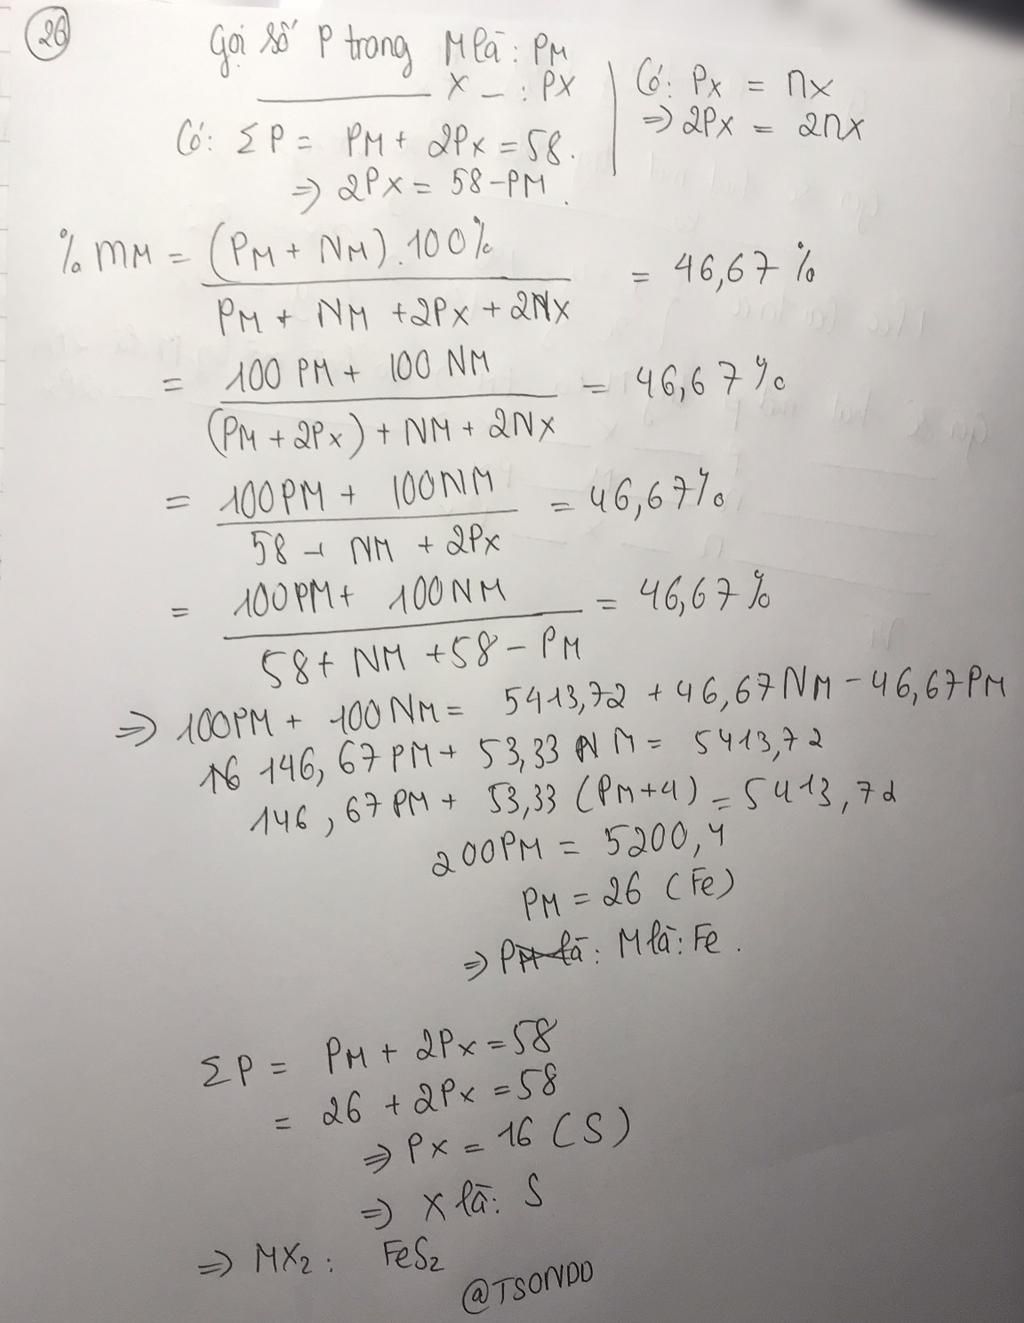 26
Gọi số P trong M là : PM
X _ : PX
Có: Px = nx
=> 2Px = 2nx
Có: ΣP = PM + 2Px = 58.
=> 2Px = 58 - PM.
% mM = (PM + NM).100% / PM + NM + 2Px + 2Nx = 46,67%
= 100PM + 100NM / (PM + 2Px) + NM + 2Nx = 46,67%
= 100PM + 100NM / 58 + NM + 2Px = 46,67%
= 100PM + 100NM / 58 + NM + 58 - PM = 46,67%
=> 100PM + 100NM = 5413,72 + 46,67NM - 46,67PM
146,67PM + 53,33 NM = 5413,72
146,67PM + 53,33 (PM+4) = 5413,72
200PM = 5200,4
PM = 26 (Fe)
=> M là: Fe.
ΣP = PM + 2Px = 58
= 26 + 2Px = 58
=> Px = 16 (S)
=> X là: S
=> MX2 : FeS2
@TSONDD